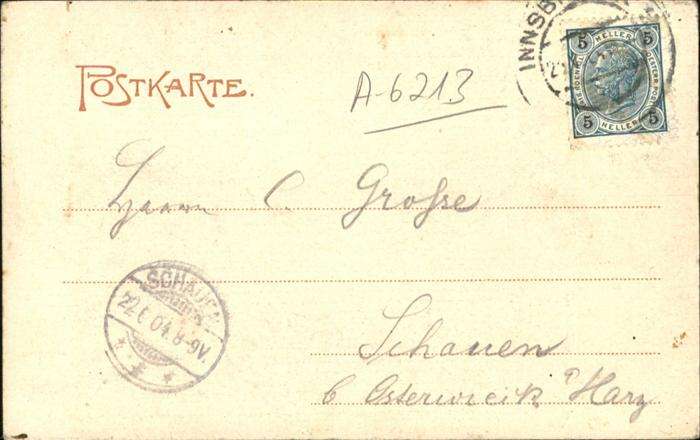 INNSB
5 HELLER 5
5 HELLER 5
POSTKARTE.
A-6213
Herrn C. Große
SCHAUEN
22.1.04.8-9V.
Schauen
b Osterwieck a Harz